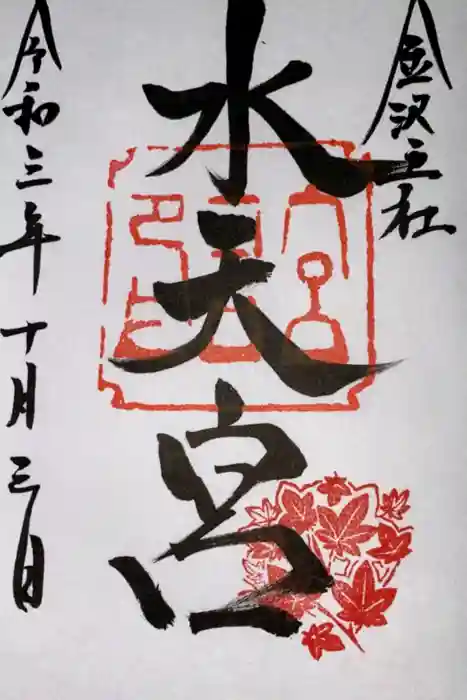 金沢主社
水天宮
令和三年十月三日